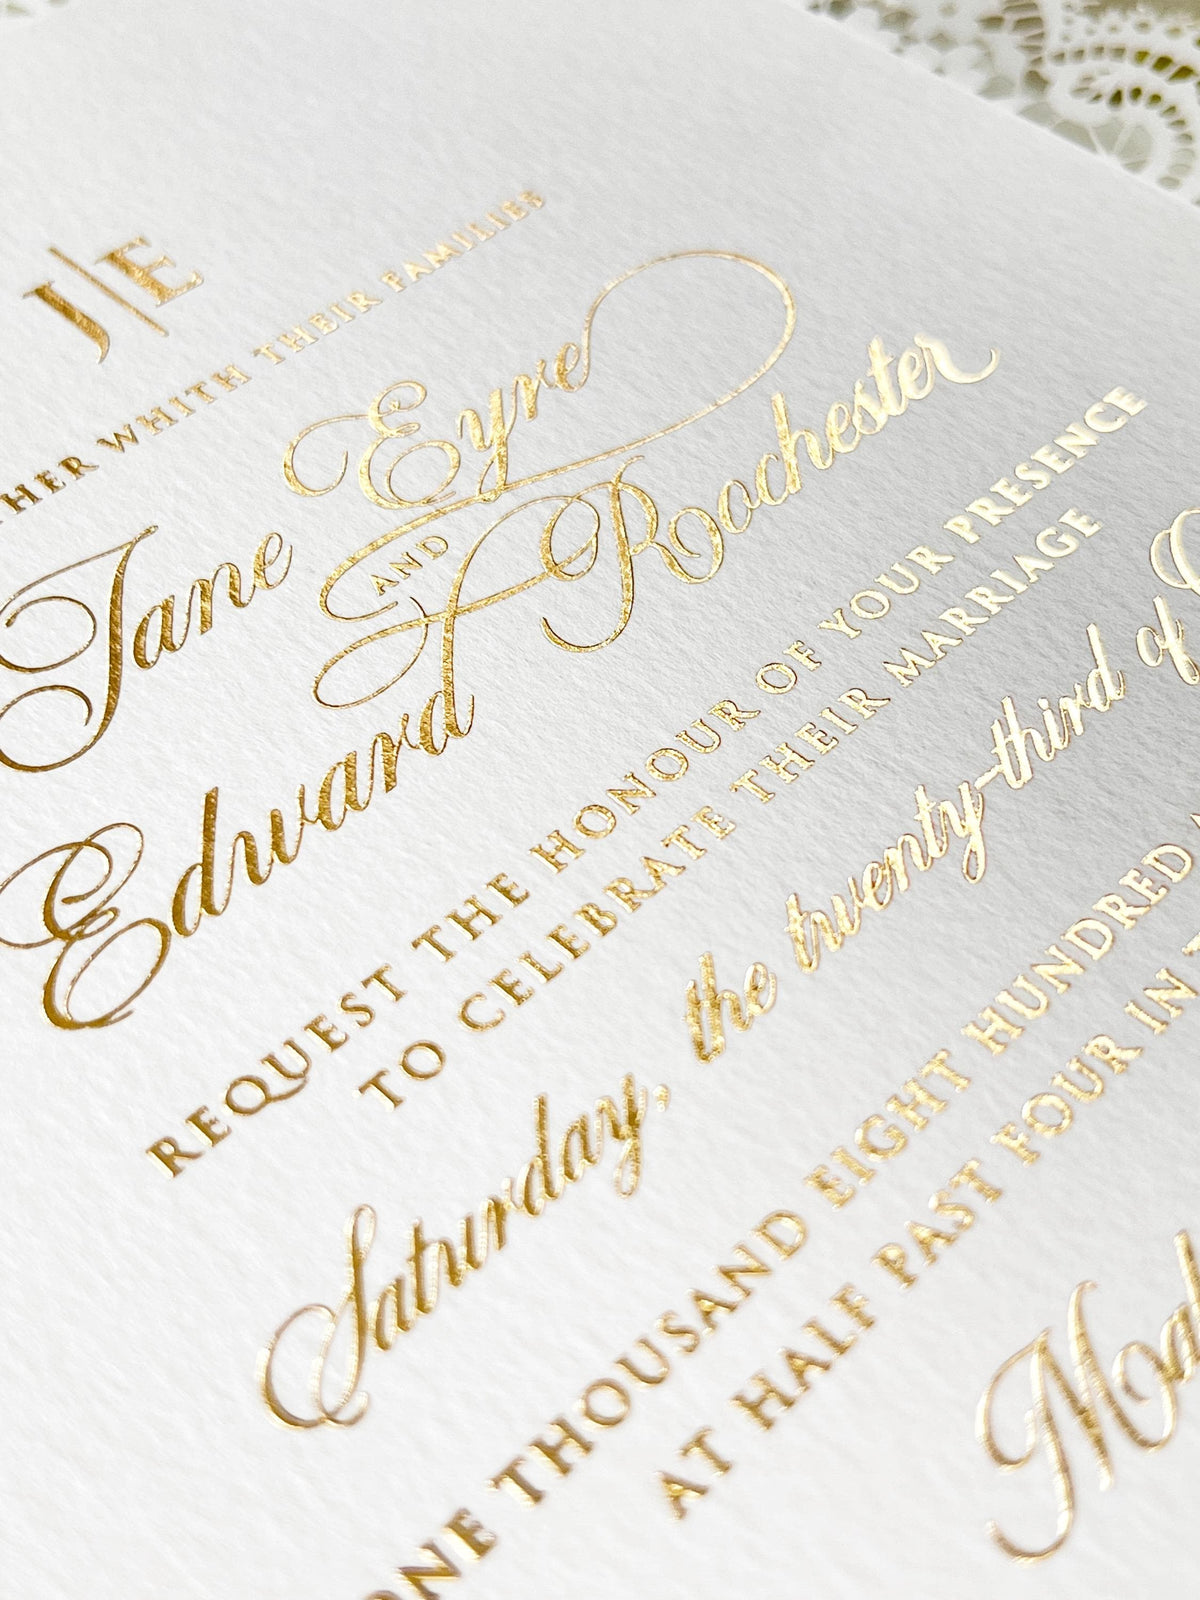 J|E
HER WHITH THEIR FAMILIES
Jane Eyre
AND
Edward Roochester
REQUEST THE HONOUR OF YOUR PRESENCE
TO CELEBRATE THEIR MARRIAGE
Saturday, the twenty-third of
ONE THOUSAND EIGHT HUNDRED
AT HALF PAST FOUR IN